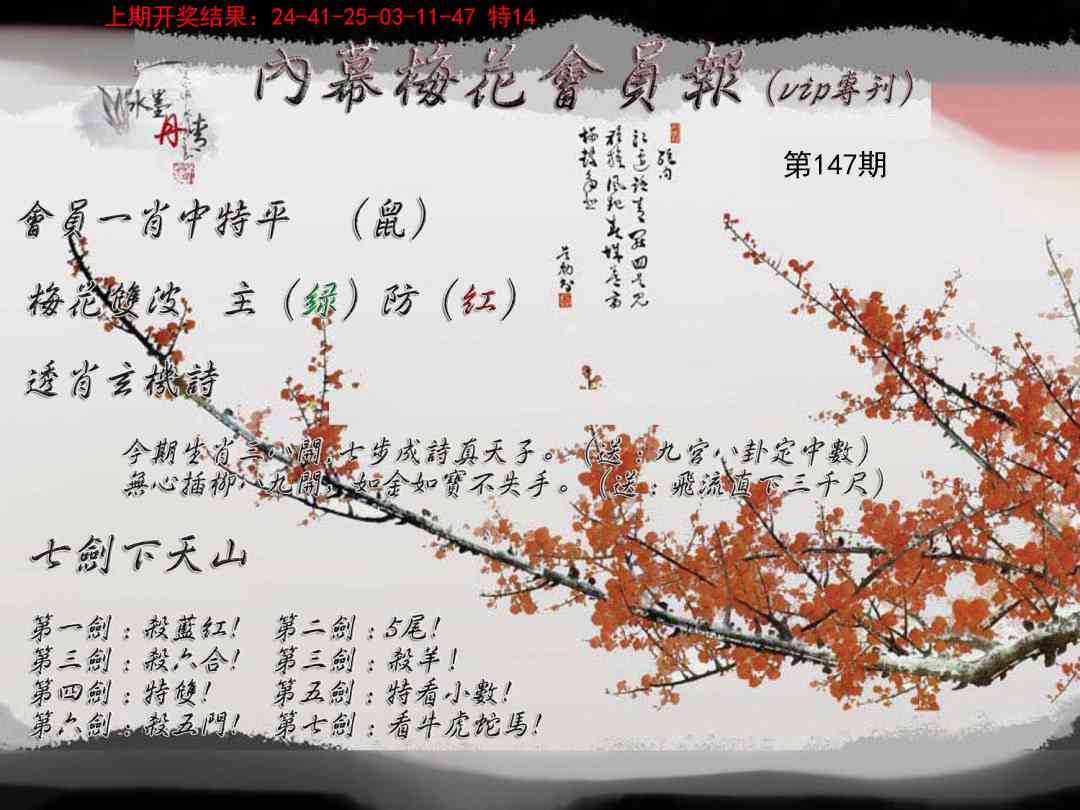 上期开奖结果：24-41-25-03-11-47 特14
內幕梅花會員報（vip專刊）
水墨
丹青
第147期
會員一肖中特平　（鼠）
梅花雙波　主（绿）防（红）
透肖玄機詩
今期生肖三八開;七步成詩真天子。（送：九宮八卦定中數）
無心插柳八九開，如金如寶不失手。（送：飛流直下三千尺）
七劍下天山
第一劍：殺藍紅！　第二劍：5尾！
第三劍：殺六合！　第三劍：殺羊！
第四劍：特雙！　第五劍：特看小數！
第六劍：殺五門！　第七劍：看牛虎蛇馬！